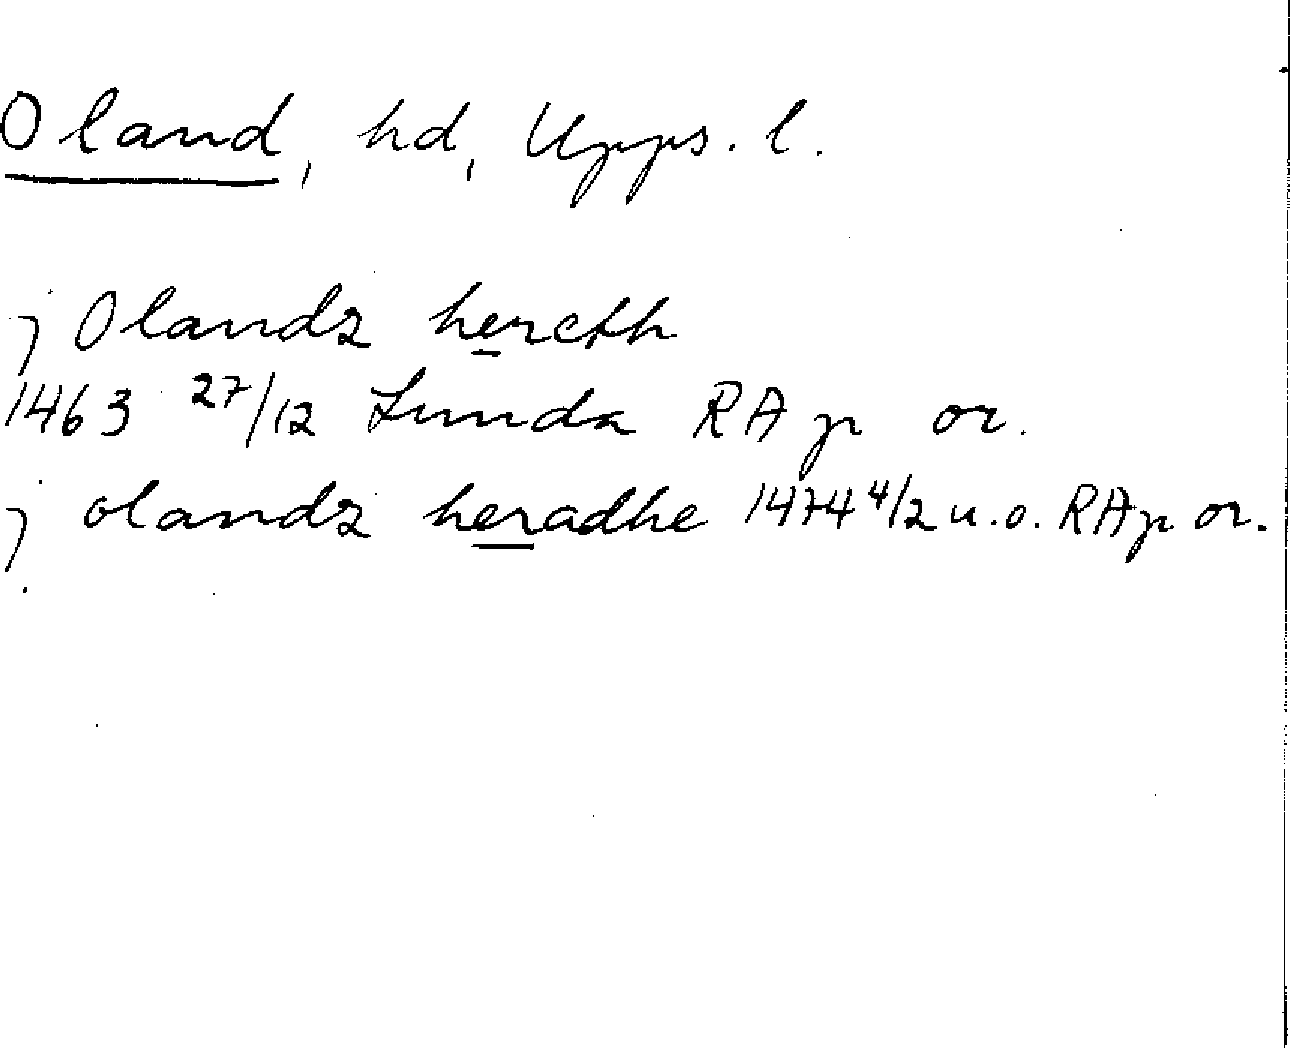 Oland, hd, Upps. l.
j Olandz hereth
1463 27/12 Lunda RA p or.
j olandz heradhe 1474 4/2 u.o. RA p or.